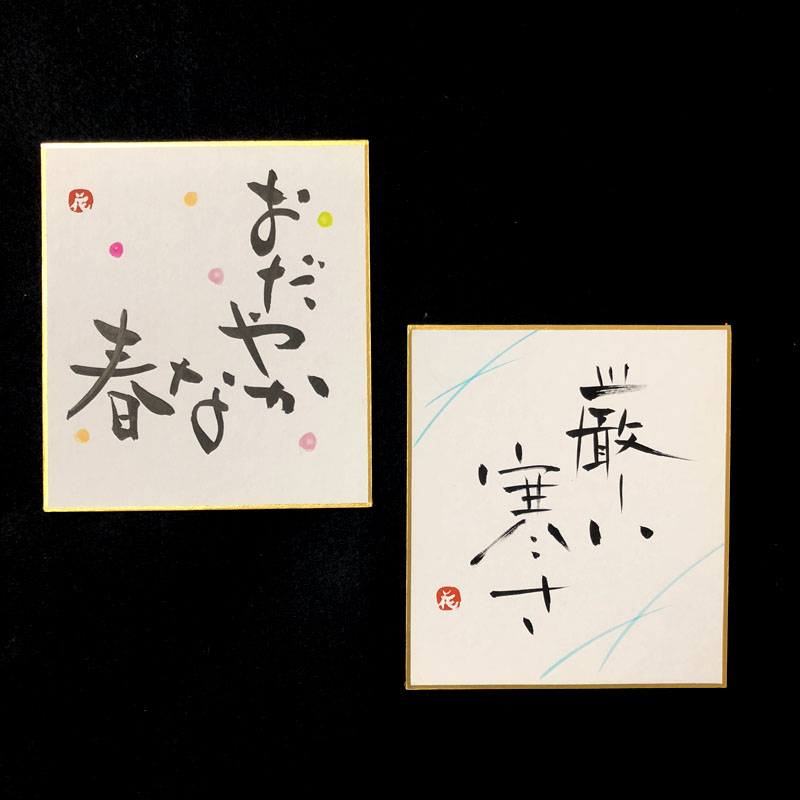 おだやかな
春
厳しい
寒さ
花
花